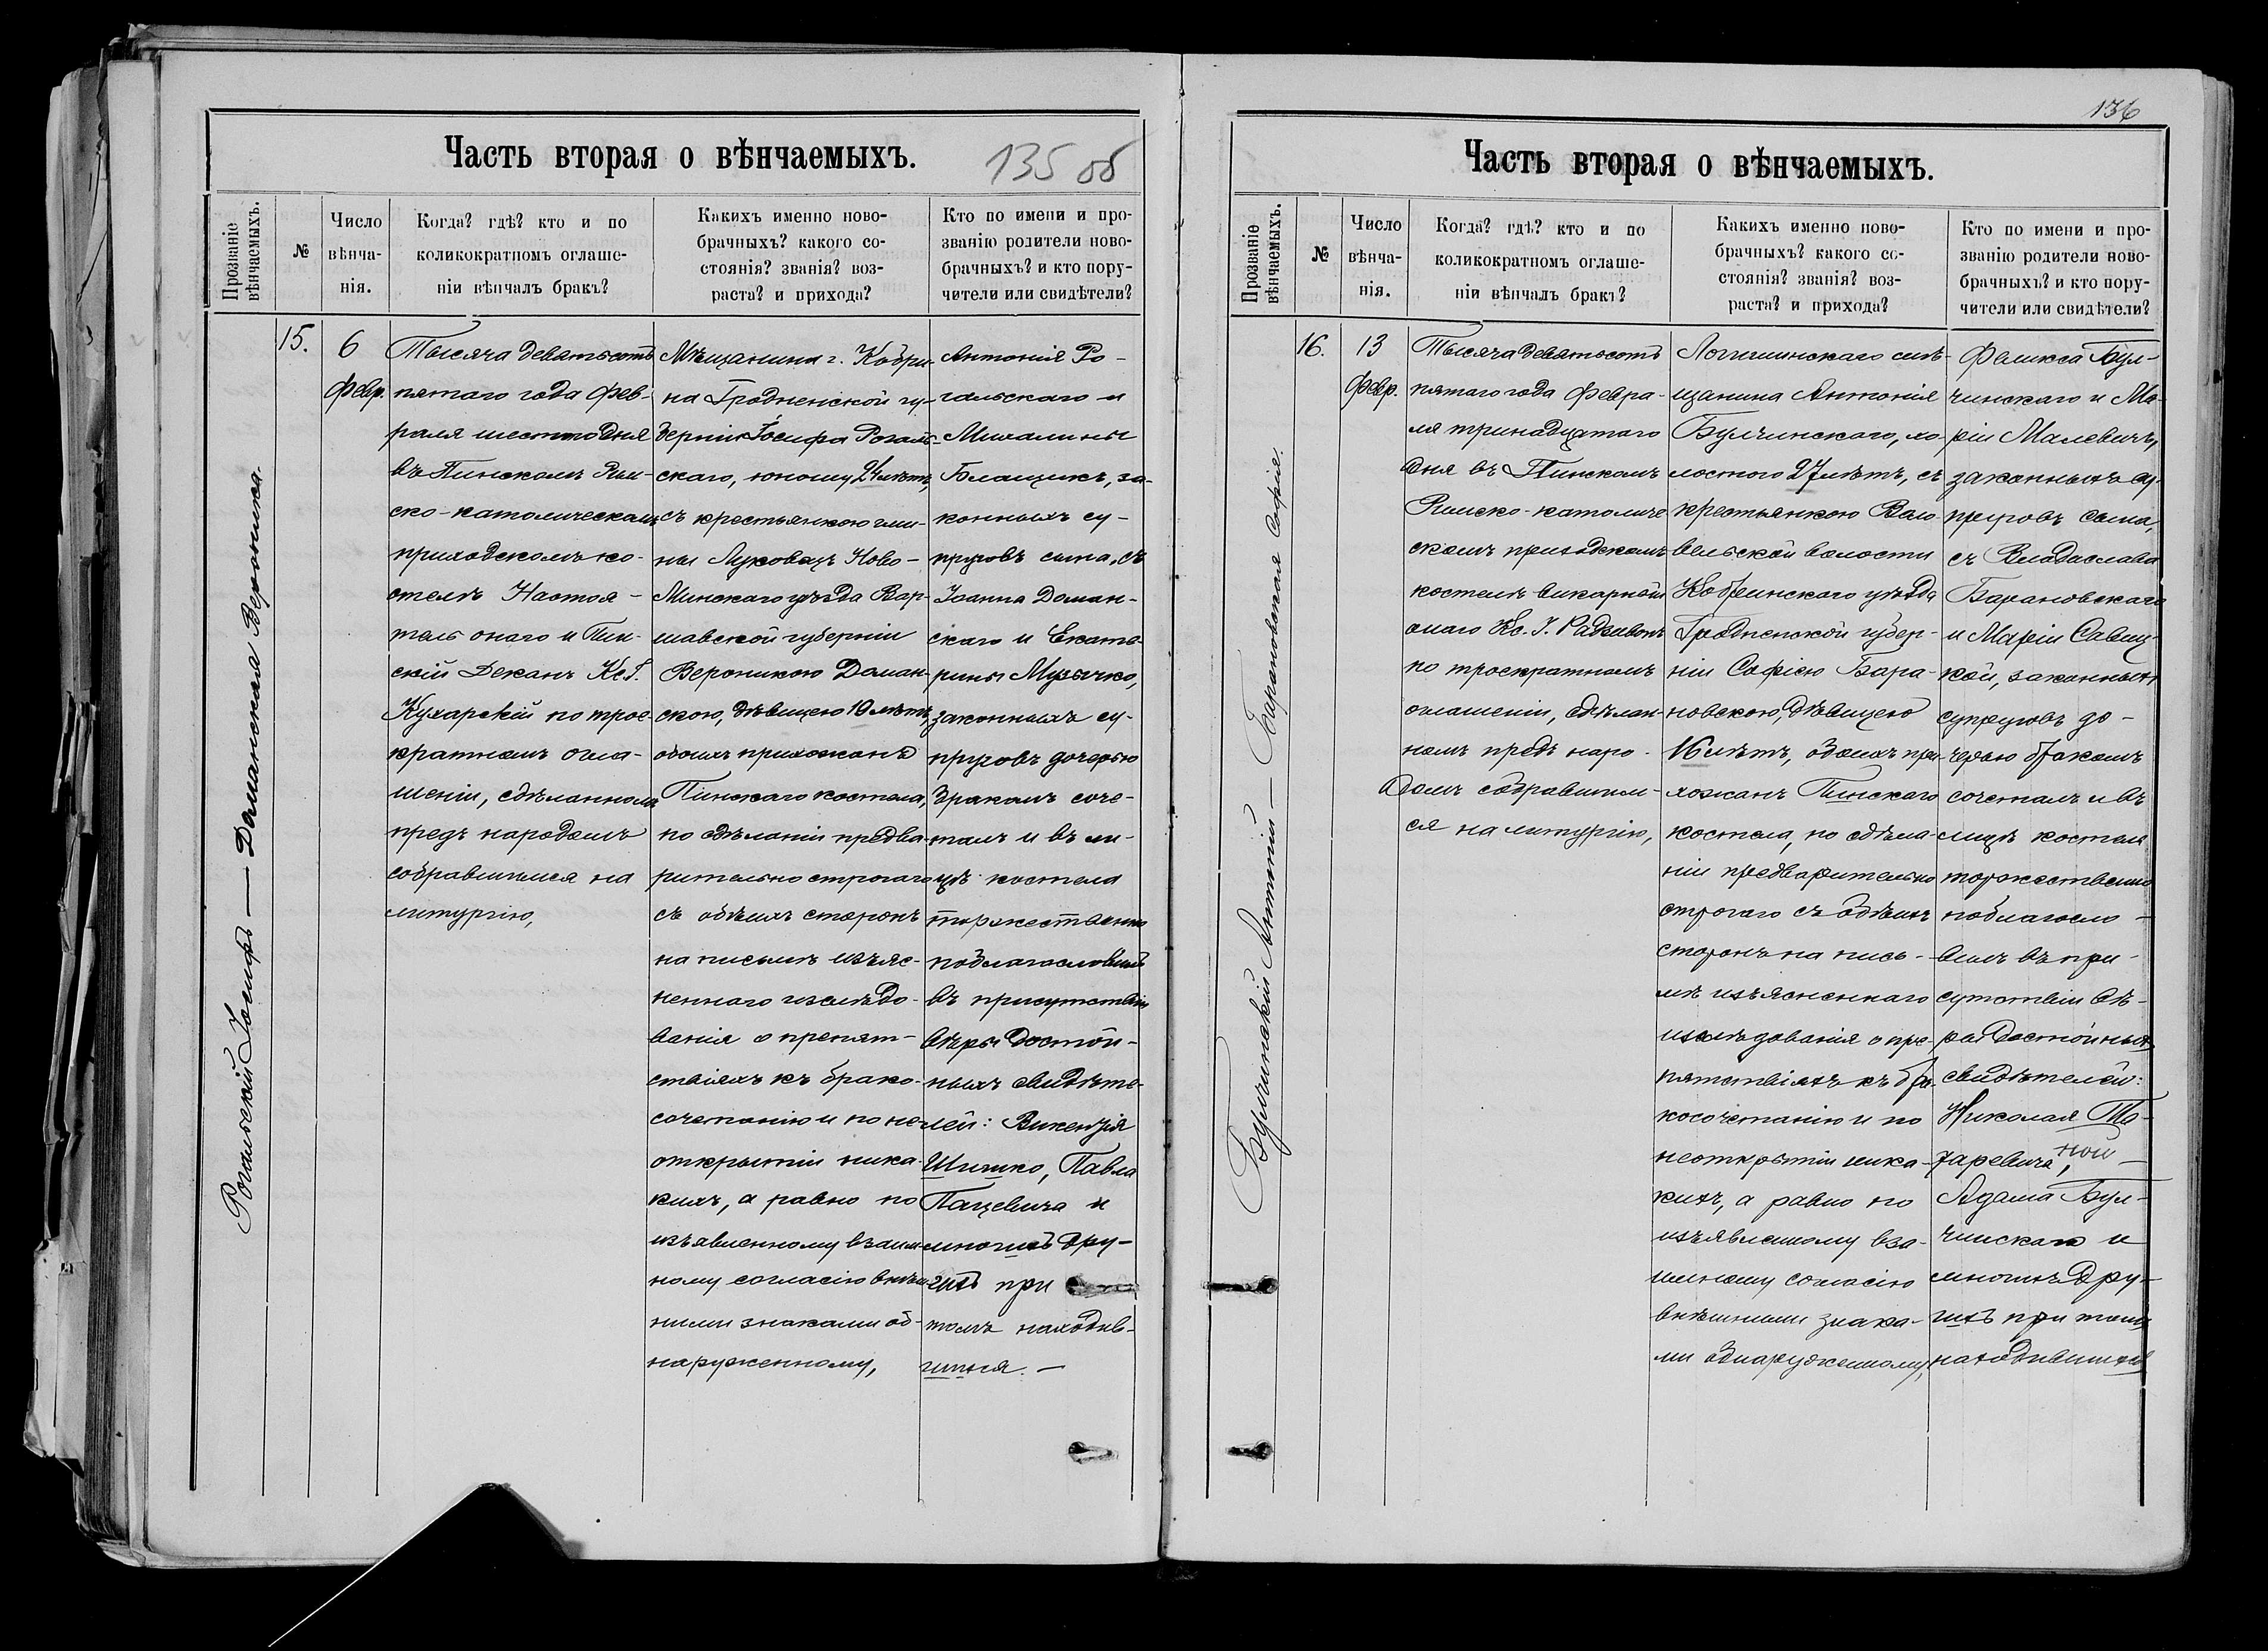 Часть вторая о вѣнчаемыхъ.
135 об
Прозваніе
вѣнчаемыхъ.
№
Число
вѣнча-
нія.
Когда? гдѣ? кто и по
коликократномъ оглаше-
ніи вѣнчалъ бракъ?
Какихъ именно ново-
брачныхъ? какого со-
стоянія? званія? воз-
раста? и прихода?
Кто по имени и про-
званію родители ново-
брачныхъ? и кто пору-
чители или свидѣтели?
Рогальскій Іосифъ — Доманская Вероника.
15.
6
Февр.
Тысяча девятьсотъ
пятаго года Фев-
раля шестого дня
въ Пинскомъ Рим-
ско-католическомъ
приходскомъ ко-
стелѣ Настоя-
тель онаго и Пин-
скій Деканъ Кс. І.
Кухарскій по трое-
кратномъ огла-
шеніи, сдѣланномъ
предъ народомъ
собравшимся на
литургію,
Мѣщанина г. Кобри-
на Гродненской гу-
берніи Іосифа Рогаль-
скаго, юношу 24 лѣтъ,
съ крестьянкою гми-
ны Луковецъ Ново-
Минскаго уѣзда Вар-
шавской губерніи
Вероникою Доман-
скою, дѣвицею 19 лѣтъ,
обоихъ прихожанъ
Пинскаго костела,
по сдѣланіи предва-
рительно строгаго
съ обѣихъ сторонъ
на письмѣ изъяс-
неннаго изслѣдо-
ванія о препят-
ствіяхъ къ брако-
сочетанію и по не-
открытіи ника-
кихъ, а равно по
изъявленному взаим-
ному согласію внѣш-
ними знаками об-
наруженному,
Антонія Ро-
гальскаго и
Михалины
Блащукъ, за-
конныхъ су-
пруговъ сына, съ
Іоанна Доман-
скаго и Екате-
рины Музычко,
законныхъ су-
пруговъ дочерью
бракомъ соче-
талъ и въ ли-
цѣ костела
торжественно
поблагословилъ
въ присутствіи
вѣры достой-
ныхъ свидѣте-
лей: Викентія
Шишко, Павла
Пацевича и
многихъ дру-
гихъ при
томъ находив-
шихся. —
136
Часть вторая о вѣнчаемыхъ.
Прозваніе
вѣнчаемыхъ.
№
Число
вѣнча-
нія.
Когда? гдѣ? кто и по
коликократномъ оглаше-
ніи вѣнчалъ бракъ?
Какихъ именно ново-
брачныхъ? какого со-
стоянія? званія? воз-
раста? и прихода?
Кто по имени и про-
званію родители ново-
брачныхъ? и кто пору-
чители или свидѣтели?
Булчинскій Антоній — Барановская Софія.
16.
13
Февр.
Тысяча девятьсотъ
пятаго года Февра-
ля тринадцатаго
дня въ Пинскомъ
Римско-католиче
скомъ приходскомъ
костелѣ викарный
онаго Кс. І. Радзивонъ
по троекратномъ
оглашеніи, сдѣлан-
номъ предъ наро-
домъ собравшим-
ся на литургію,
Логишинскаго мѣ-
щанина Антонія
Булчинскаго, хо-
лостого 27 лѣтъ, съ
крестьянкою Воло
вельской волости
Кобринскаго уѣзда
Гродненской губер-
ніи Софіею Бара-
новскою, дѣвицею
16 лѣтъ, обоихъ при-
хожанъ Пинскаго
костела, по сдѣла-
ніи предварительно
строгаго съ обѣихъ
сторонъ на пись-
мѣ изъясненнаго
изслѣдованія о пре-
пятствіяхъ къ бра-
косочетанію и по
неоткрытіи ника-
кихъ, а равно по
изъявленному вза-
имному согласію
внѣшними знака-
ми обнаруженному,
Феликса Бул-
чинскаго и Ма-
ріи Малевичъ,
законныхъ су-
пруговъ сына,
съ Владислава
Барановскаго
и Маріи Савиц-
кой, законныхъ
супруговъ до-
черью бракомъ
сочеталъ и въ
лицѣ костела
торжественно
поблагосло-
вилъ въ при-
сутствіи вѣ-
ры достойныхъ
свидѣтелей:
Николая
Адама Бул-
чинскаго и
многихъ дру-
гихъ при томъ
находившихся